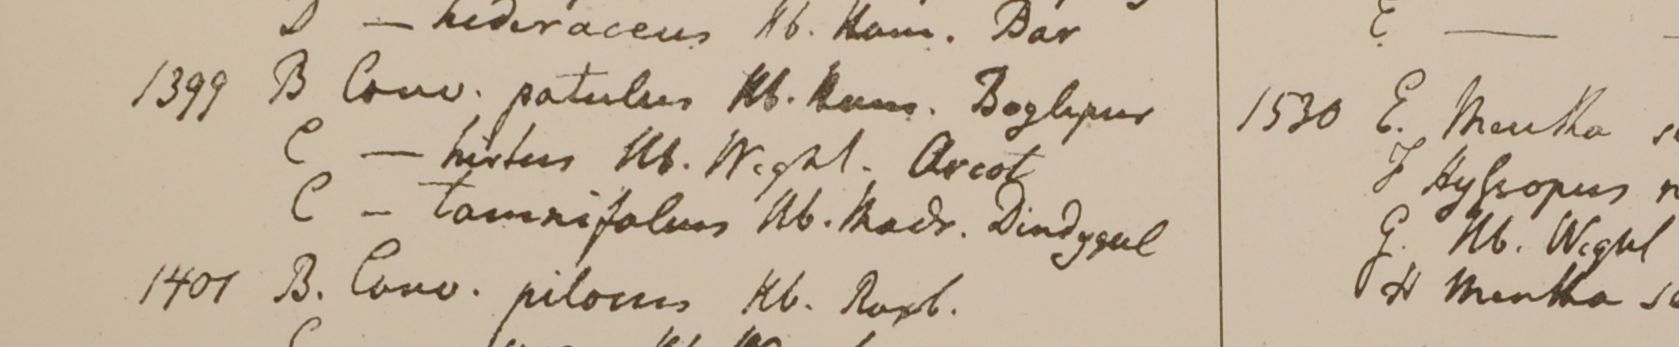 D — hederaceus Hb. Ham. Bar
1399 B Conv. patulus Hb. Ham. Boglipur
C — hirtus Hb. Wight. Arcot
C — tamnifolius Hb. Madr. Dindygul
1401 B. Conv. pilosus Hb. Roxb.
E —
1530 E. Mentha
F Hyssopus
G. Hb. Wight
H Mentha